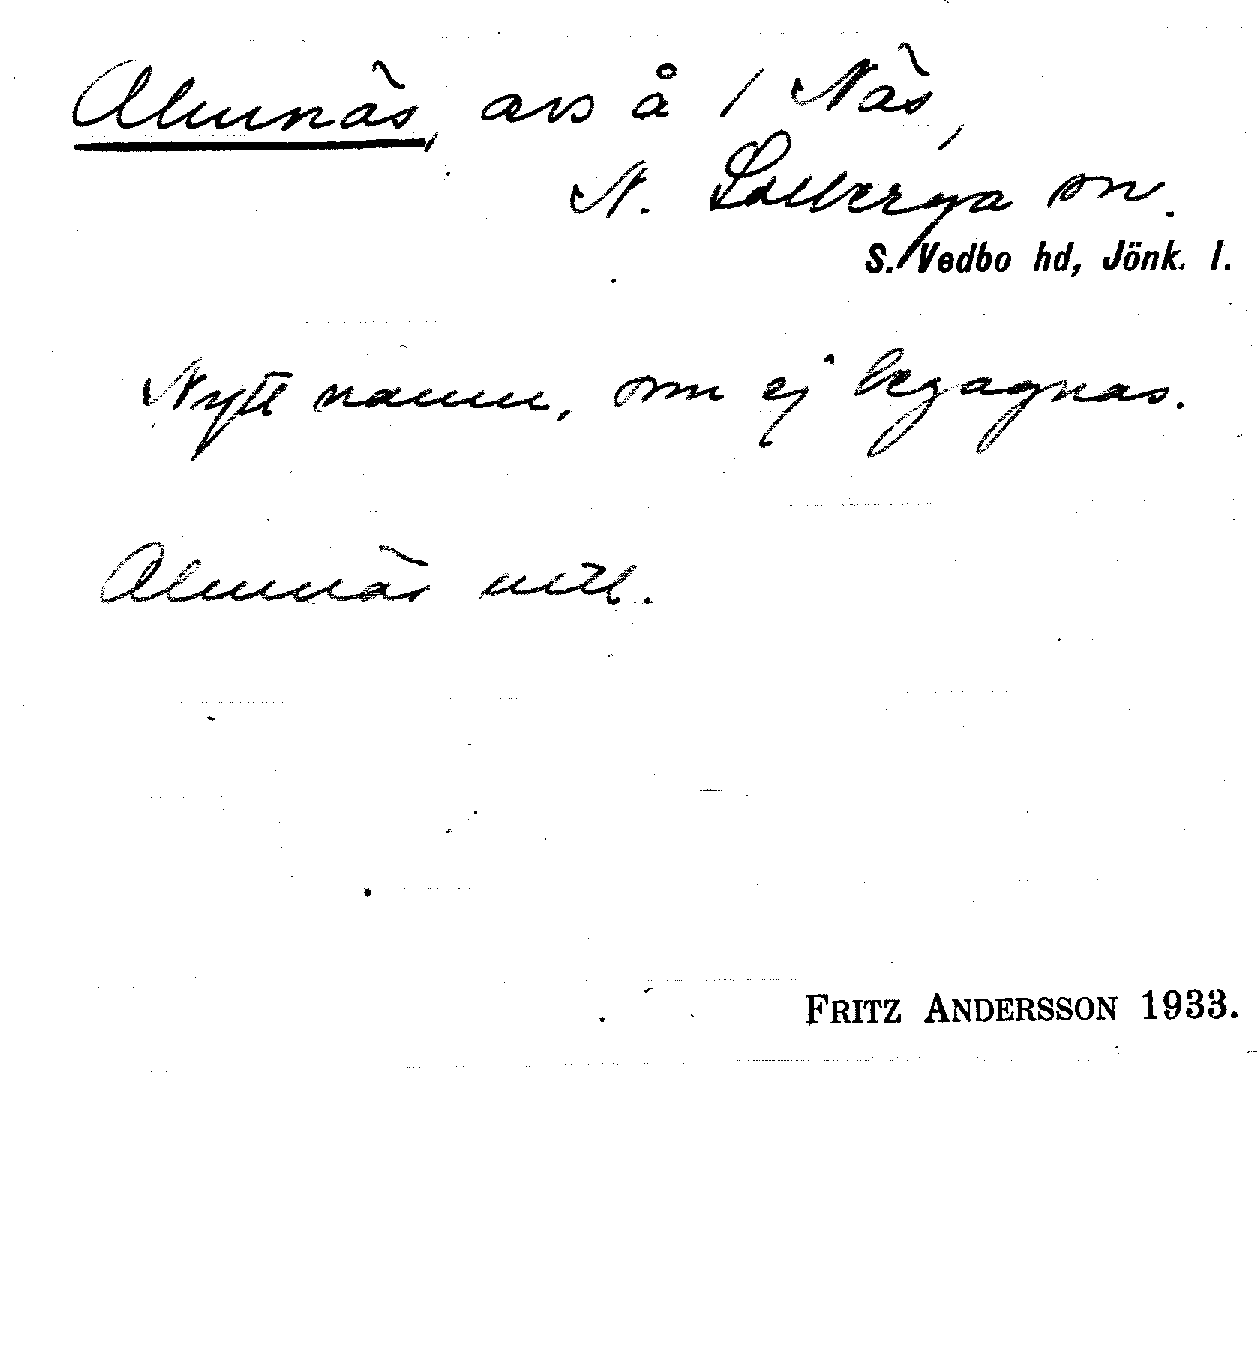 Almnäs, avs å 1 Näs,
N. Solberga sn.
S. Vedbo hd, Jönk. l.
Nytt namn, som ej begagnas.
Almnäs
FRITZ ANDERSSON 1933.